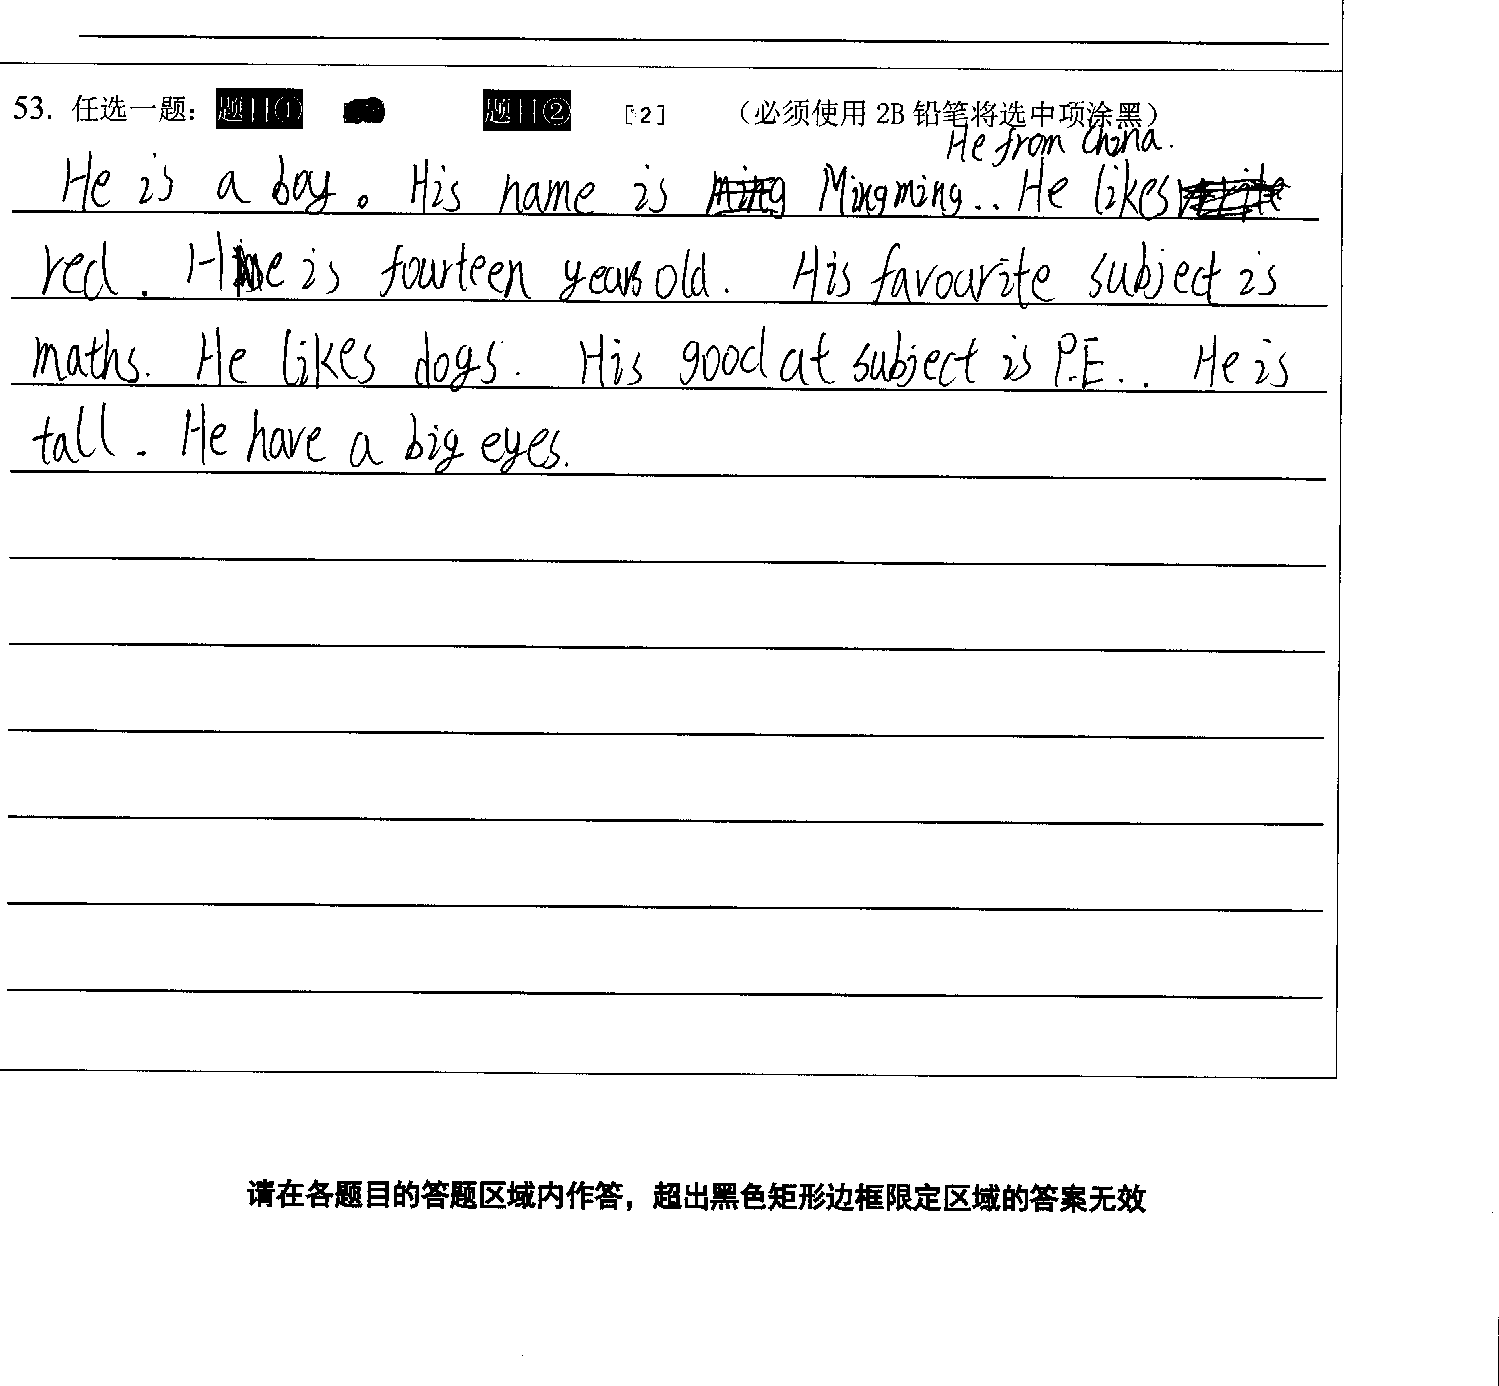 53. 任选一题： 题目① 题目② [2] （必须使用 2B 铅笔将选中项涂黑）
He from China.
He is a boy. His name is Mingming.. He likes
red. He is fourteen years old. His favourite subject is
maths. He likes dogs. His good at subject is P.E.. He is
tall. He have a big eyes.
请在各题目的答题区域内作答，超出黑色矩形边框限定区域的答案无效